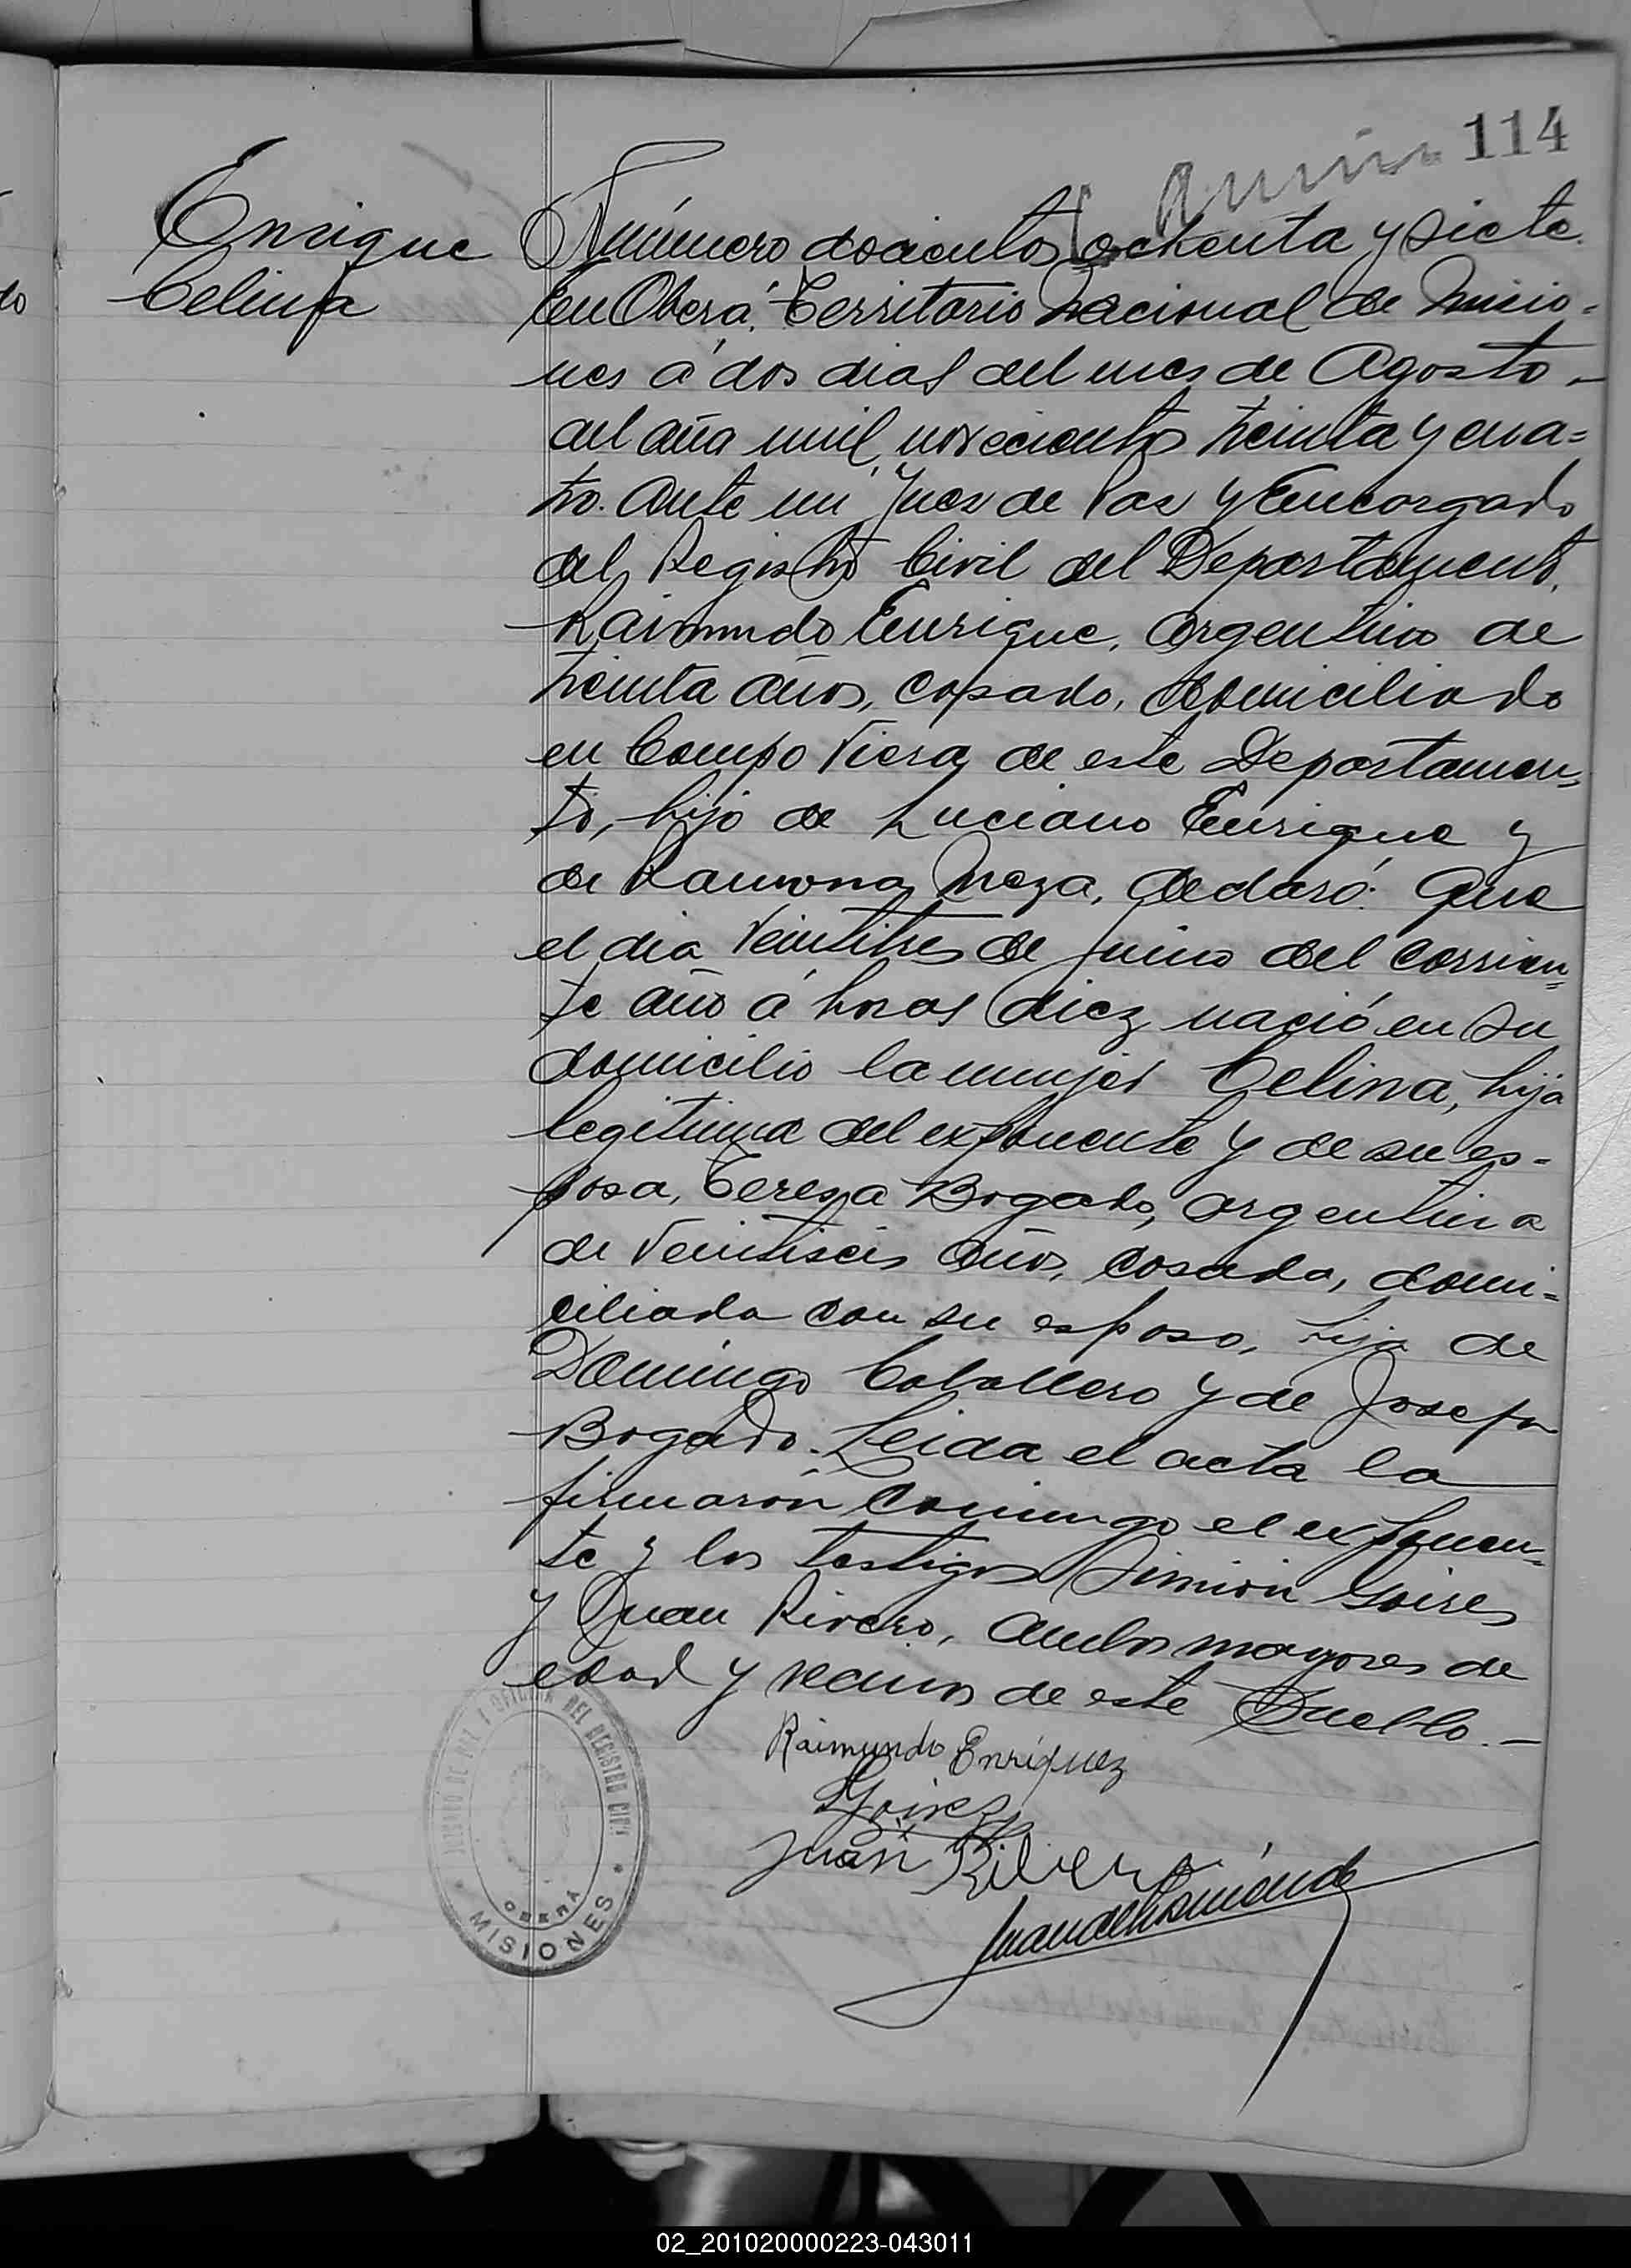 114
Enrique
Celina
Número doscientos ochenta y siete.
En Oberá, Territorio Nacional de Misio=
nes á dos dias del mes de Agosto -
del año mil novecientos treinta y cua=
tro. Ante mi Juez de Paz y Encargado
del Registro Civil del Departamento,
Raimundo Enrique, Argentino de
treinta años, casado, domiciliado
en Campo Viera de este Departamen=
to, hijo de Luciano Enrique y
de Ramona Meza, declaró: Que
el dia veintitres de Junio del corrien=
te año á horas diez nació en su
domicilio la mujer Celina, hija
legitima del exponente y de su es=
posa, Teresa Bogado, argentina
de veintiseis años, casada, domi=
ciliada con su esposo, hija de
Domingo Caballero y de Josefa
Bogado. Leida el acta la
firmarón conmigo el exponen=
te y los testigos Simión Goires
y Juan Rivero, ambos mayores de
edad y vecinos de este Pueblo. -
Raimundo Enríquez
SGoires
Juan Ribero
JUZGADO DE PAZ Y OFICINA DEL REGISTRO CIVIL
OBERÁ
MISIONES
02_201020000223-043011